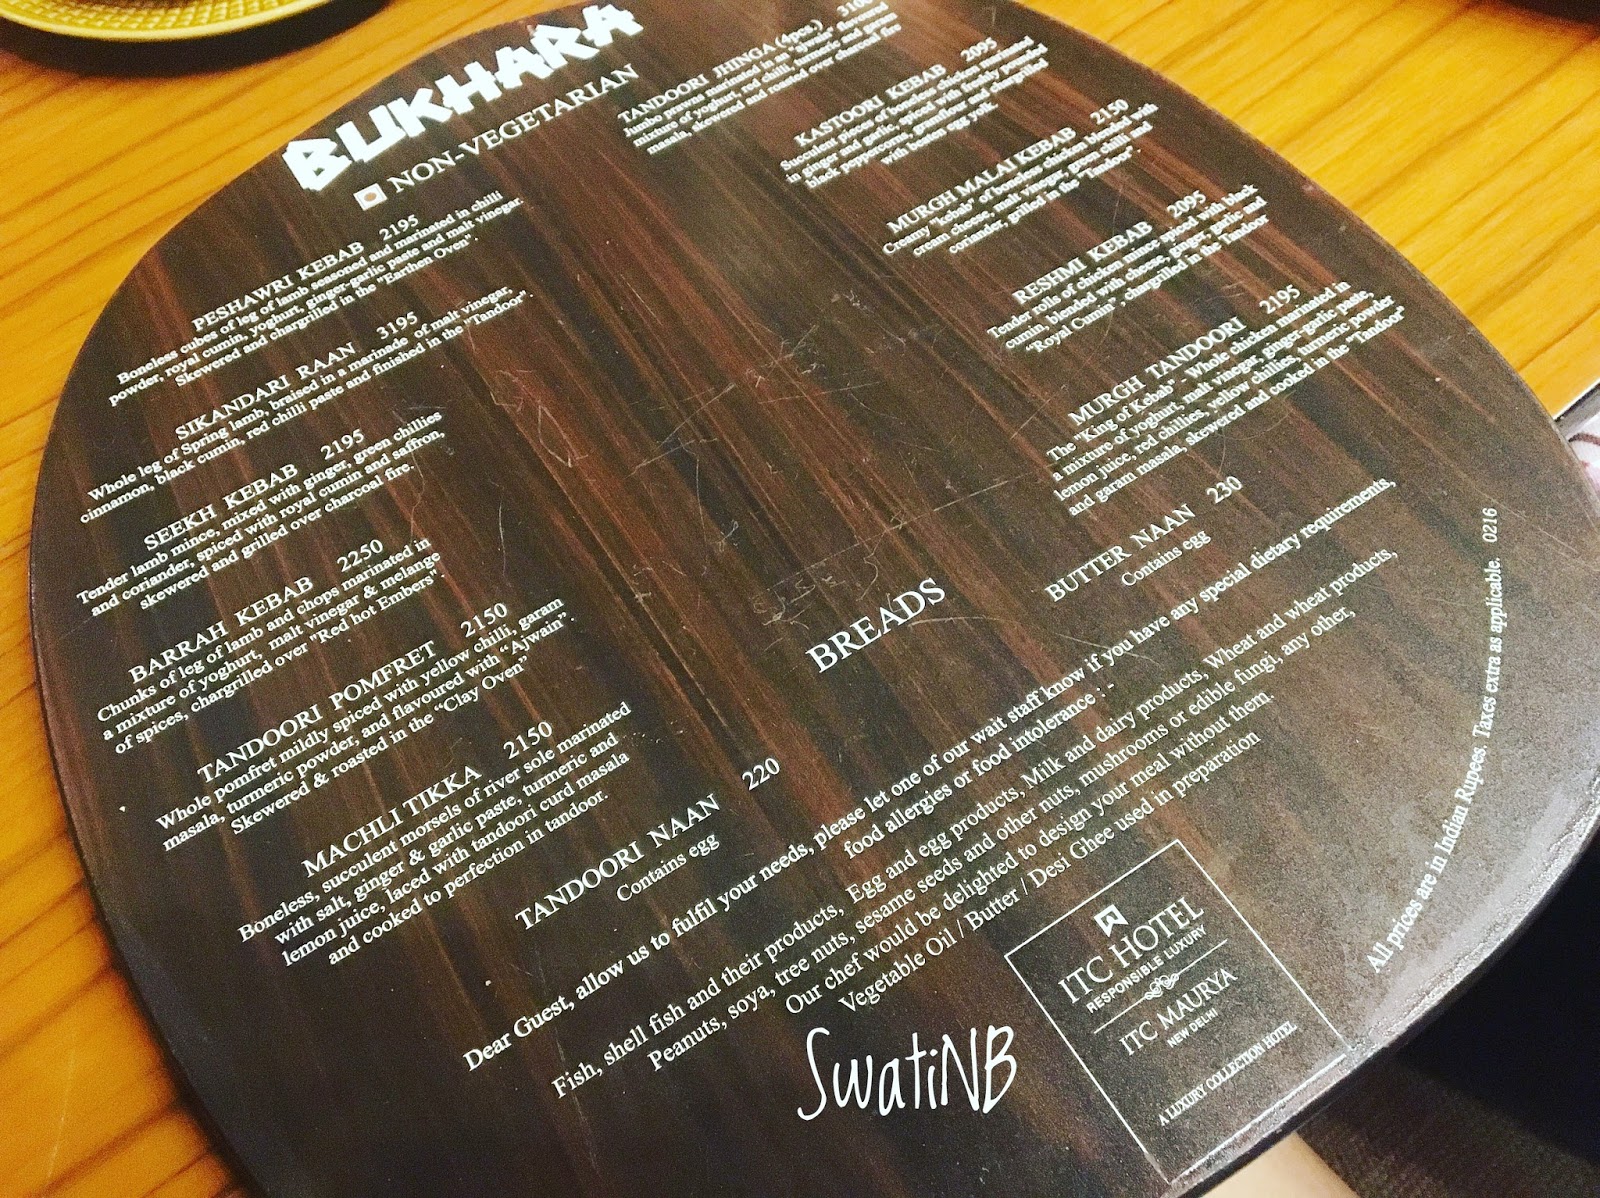 BUKHARA
NON-VEGETARIAN
PESHAWRI KEBAB 2195
Boneless cubes of leg of lamb seasoned and marinated in chilli
powder, royal cumin, yoghurt, ginger-garlic paste and malt vinegar.
Skewered and chargrilled in the "Earthen Oven".
SIKANDARI RAAN 3195
Whole leg of Spring lamb, braised in a marinade of malt vinegar,
cinnamon, black cumin, red chilli paste and finished in the "Tandoor".
SEEKH KEBAB 2195
Tender lamb mince, mixed with ginger, green chillies
and coriander, spiced with royal cumin and saffron,
skewered and grilled over charcoal fire.
BARRAH KEBAB 2250
Chunks of leg of lamb and chops marinated in
a mixture of yoghurt, malt vinegar & melange
of spices, chargrilled over "Red hot Embers".
TANDOORI POMFRET 2150
Whole pomfret mildly spiced with yellow chilli, garam
masala, turmeric powder, and flavoured with “Ajwain”.
Skewered & roasted in the “Clay Oven”
MACHLI TIKKA 2150
Boneless, succulent morsels of river sole marinated
with salt, ginger & garlic paste, turmeric and
lemon juice, laced with tandoori curd masala
and cooked to perfection in tandoor.
TANDOORI JHINGA (4pcs.)
Jumbo prawns marinated in an "ajwain" flavoured
mixture of yoghurt, red chilli, turmeric and garam
masala, skewered and roasted over charcoal fire
KASTOORI KEBAB 2095
Succulent pieces of boneless chicken marinated
in ginger and garlic, spiced with freshly pound
black peppercorns, gramflour and chargrilled
with beaten egg yolk.
MURGH MALAI KEBAB 2150
Creamy "kebab" of boneless chicken blended with
cream cheese, malt vinegar, green chilli and
coriander, grilled in the "Tandoor".
RESHMI KEBAB 2095
Tender rolls of chicken mince spiced with black
cumin, blended with cheese, ginger, garlic and
“Royal Cumin”, chargrilled in the Tandoor
MURGH TANDOORI 2195
The "King of Kebab" - Whole chicken marinated in
a mixture of yoghurt, malt vinegar, ginger-garlic paste,
lemon juice, red chillies, yellow chillies, turmeric powder
and garam masala, skewered and cooked in the "Tandoor"
BREADS
TANDOORI NAAN 220
Contains egg
BUTTER NAAN 230
Contains egg
Dear Guest, allow us to fulfil your needs, please let one of our wait staff know if you have any special dietary requirements,
food allergies or food intolerance : -
Fish, shell fish and their products, Egg and egg products, Milk and dairy products, Wheat and wheat products,
Peanuts, soya, tree nuts, sesame seeds and other nuts, mushrooms or edible fungi, any other,
Our chef would be delighted to design your meal without them.
Vegetable Oil / Butter / Desi Ghee used in preparation
All prices are in Indian Rupees. Taxes extra as applicable. 0216
ITC HOTEL
RESPONSIBLE LUXURY
ITC MAURYA
NEW DELHI
A LUXURY COLLECTION HOTEL
SwatiNB